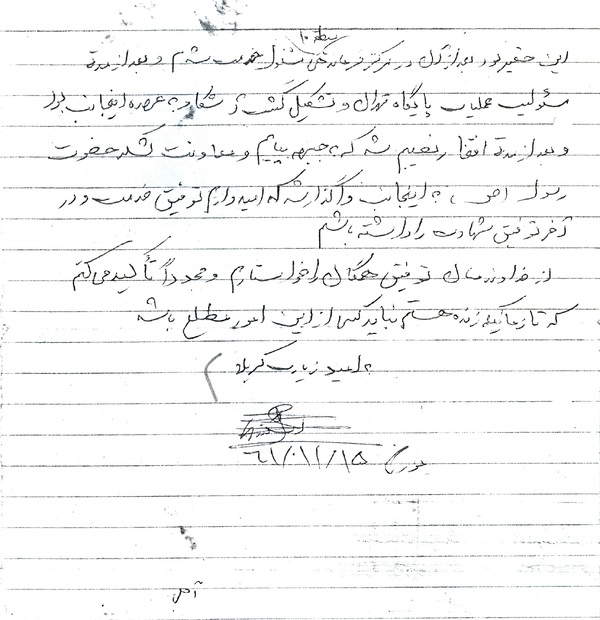 منطقه ۱۰
این حقیر بود بعد از آن در مرکز فرماندهی مشغول خدمت شدم و بعد از مدتی
مسئولیت عملیات پایگاه تهران و تشکیل گشت و به عهده اینجانب بود
و بعد از مدتی افتخار نصیبم شد که به جبهه بیایم و معاونت لشکر حضرت
رسول (ص) به اینجانب واگذار شد که امیدوارم توفیق خدمت و در
آخر توفیق شهادت را داشته باشم
از خداوند منان توفیق همگان را خواستارم و مجدداً تأکید می‌کنم
که تا زمانیکه زنده هستم نباید کسی از این امور مطلع باشد
به امید زیارت کربلا
مورخ ۶۱/۰۱/۱۵